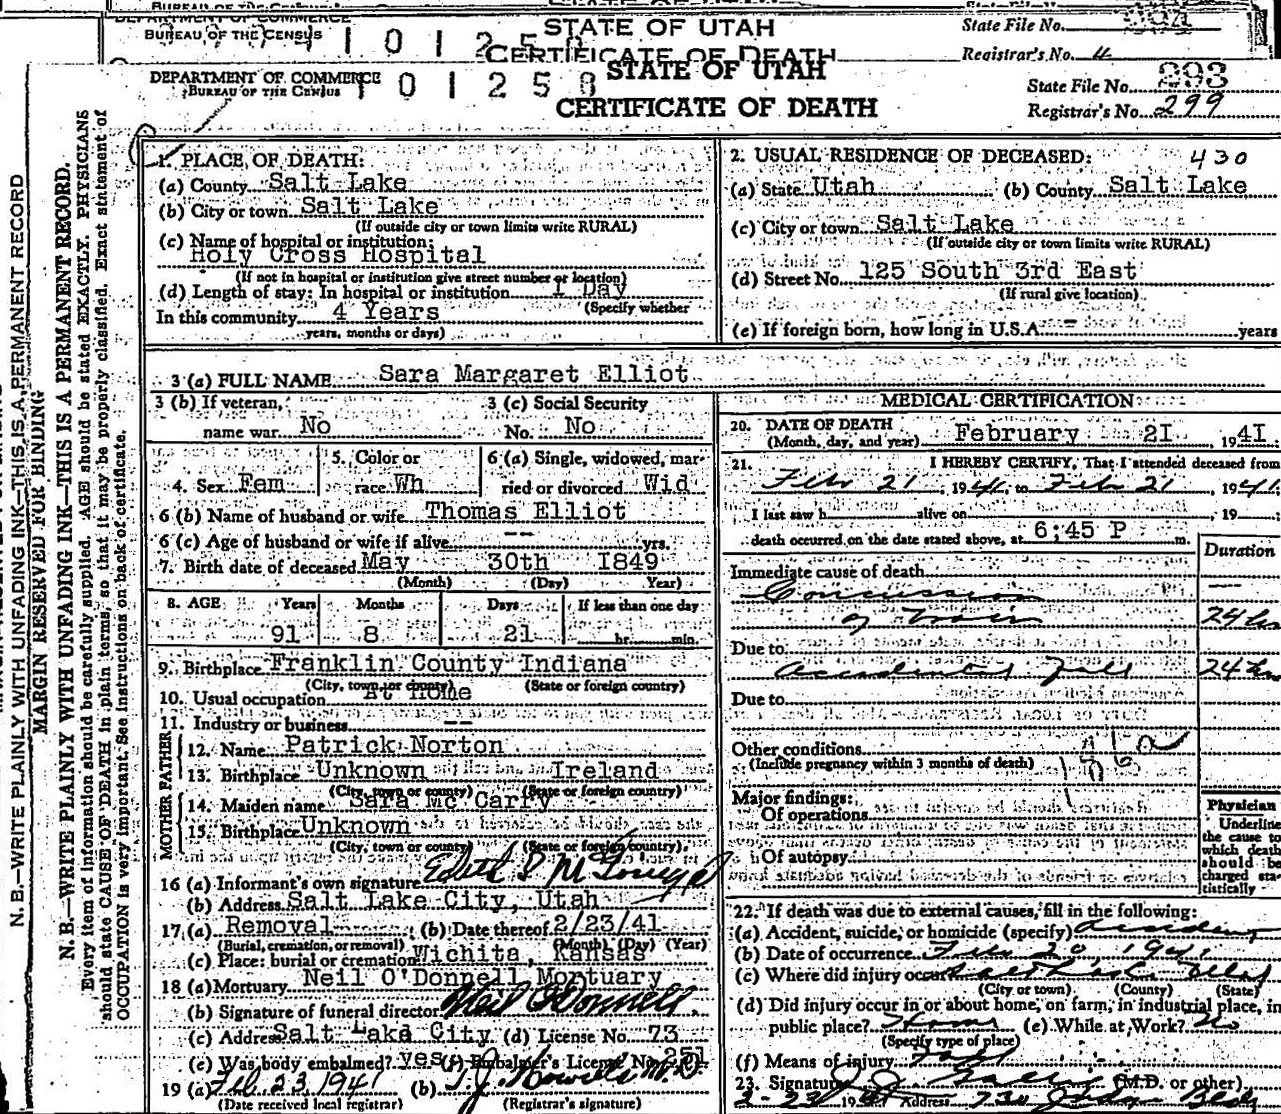 DEPARTMENT OF COMMERCE
BUREAU OF THE CENSUS
STATE OF UTAH
CERTIFICATE OF DEATH
State File No. 294
Registrar's No.
DEPARTMENT OF COMMERCE
BUREAU OF THE CENSUS
101250
STATE OF UTAH
CERTIFICATE OF DEATH
State File No. 293
Registrar's No. 299
N. B.—WRITE PLAINLY WITH UNFADING INK—THIS IS A PERMANENT RECORD
MARGIN RESERVED FOR BINDING
N. B.—WRITE PLAINLY WITH UNFADING INK—THIS IS A PERMANENT RECORD.
Every item of information should be carefully supplied. AGE should be stated EXACTLY. PHYSICIANS
should state CAUSE OF DEATH in plain terms, so that it may be properly classified. Exact statement of
OCCUPATION is very important. See instructions on back of certificate.
1. PLACE OF DEATH:
(a) County Salt Lake
(b) City or town Salt Lake
(If outside city or town limits write RURAL)
(c) Name of hospital or institution:
Holy Cross Hospital
(If not in hospital or institution give street number or location)
(d) Length of stay: In hospital or institution 1 Day
(Specify whether
In this community 4 Years
years, months or days)
2. USUAL RESIDENCE OF DECEASED: 430
(a) State Utah (b) County Salt Lake
(c) City or town Salt Lake
(If outside city or town limits write RURAL)
(d) Street No. 125 South 3rd East
(If rural give location)
(e) If foreign born, how long in U.S.A. – years
3 (a) FULL NAME Sara Margaret Elliot
3 (b) If veteran, name war No
3 (c) Social Security No. No
4. Sex Fem
5. Color or race Wh
6 (a) Single, widowed, married or divorced Wid
6 (b) Name of husband or wife Thomas Elliot
6 (c) Age of husband or wife if alive -- yrs.
7. Birth date of deceased May 30th 1849
(Month) (Day) Year)
8. AGE Years Months Days If less than one day
91 8 21 hr. min.
9. Birthplace Franklin County Indiana
(City, town, or county) (State or foreign country)
10. Usual occupation At Home
11. Industry or business --
FATHER
12. Name Patrick Norton
13. Birthplace Unknown Ireland
(City, town or county) (State or foreign country)
MOTHER
14. Maiden name Sara Mc Carry
15. Birthplace Unknown
(City, town or county) (State or foreign country)
16 (a) Informant's own signature
(b) Address Salt Lake City, Utah
17. (a) Removal (b) Date thereof 2/23/41
(Burial, cremation, or removal) (Month) (Day) (Year)
(c) Place: burial or cremation Wichita, Kansas
18 (a) Mortuary Neil O'Donnell Mortuary
(b) Signature of funeral director Neil O'Donnell
(c) Address Salt Lake City (d) License No. 73
(e) Was body embalmed? yes (f) Embalmer's License No. 251
19 (a) Feb. 23, 1941 (b)
(Date received local registrar) (Registrar's signature)
MEDICAL CERTIFICATION
20. DATE OF DEATH
(Month, day, and year) February 21 1941
21. I HEREBY CERTIFY, That I attended deceased from
Feb 21, 1941, to Feb 21, 1941
I last saw h alive on , 19
death occurred on the date stated above, at 6:45 P m.
Duration
Immediate cause of death
Concussion
of brain 24 hrs
Due to
Accidental fall 24 hrs
Due to
Other conditions
(Include pregnancy within 3 months of death)
186a
Major findings:
Of operations
Of autopsy
Physician
Underline
the cause to
which death
should be
charged statistically
22. If death was due to external causes, fill in the following:
(a) Accident, suicide, or homicide (specify) Accident
(b) Date of occurrence Feb 20, 1941
(c) Where did injury occur Salt Lake Utah
(City or town) (County) (State)
(d) Did injury occur in or about home, on farm, in industrial place, in
public place? Home (e) While at Work? No
(Specify type of place)
(f) Means of injury Fall
23. Signature (M.D. or other)
2-23 1941 Address 730 Judge Bldg